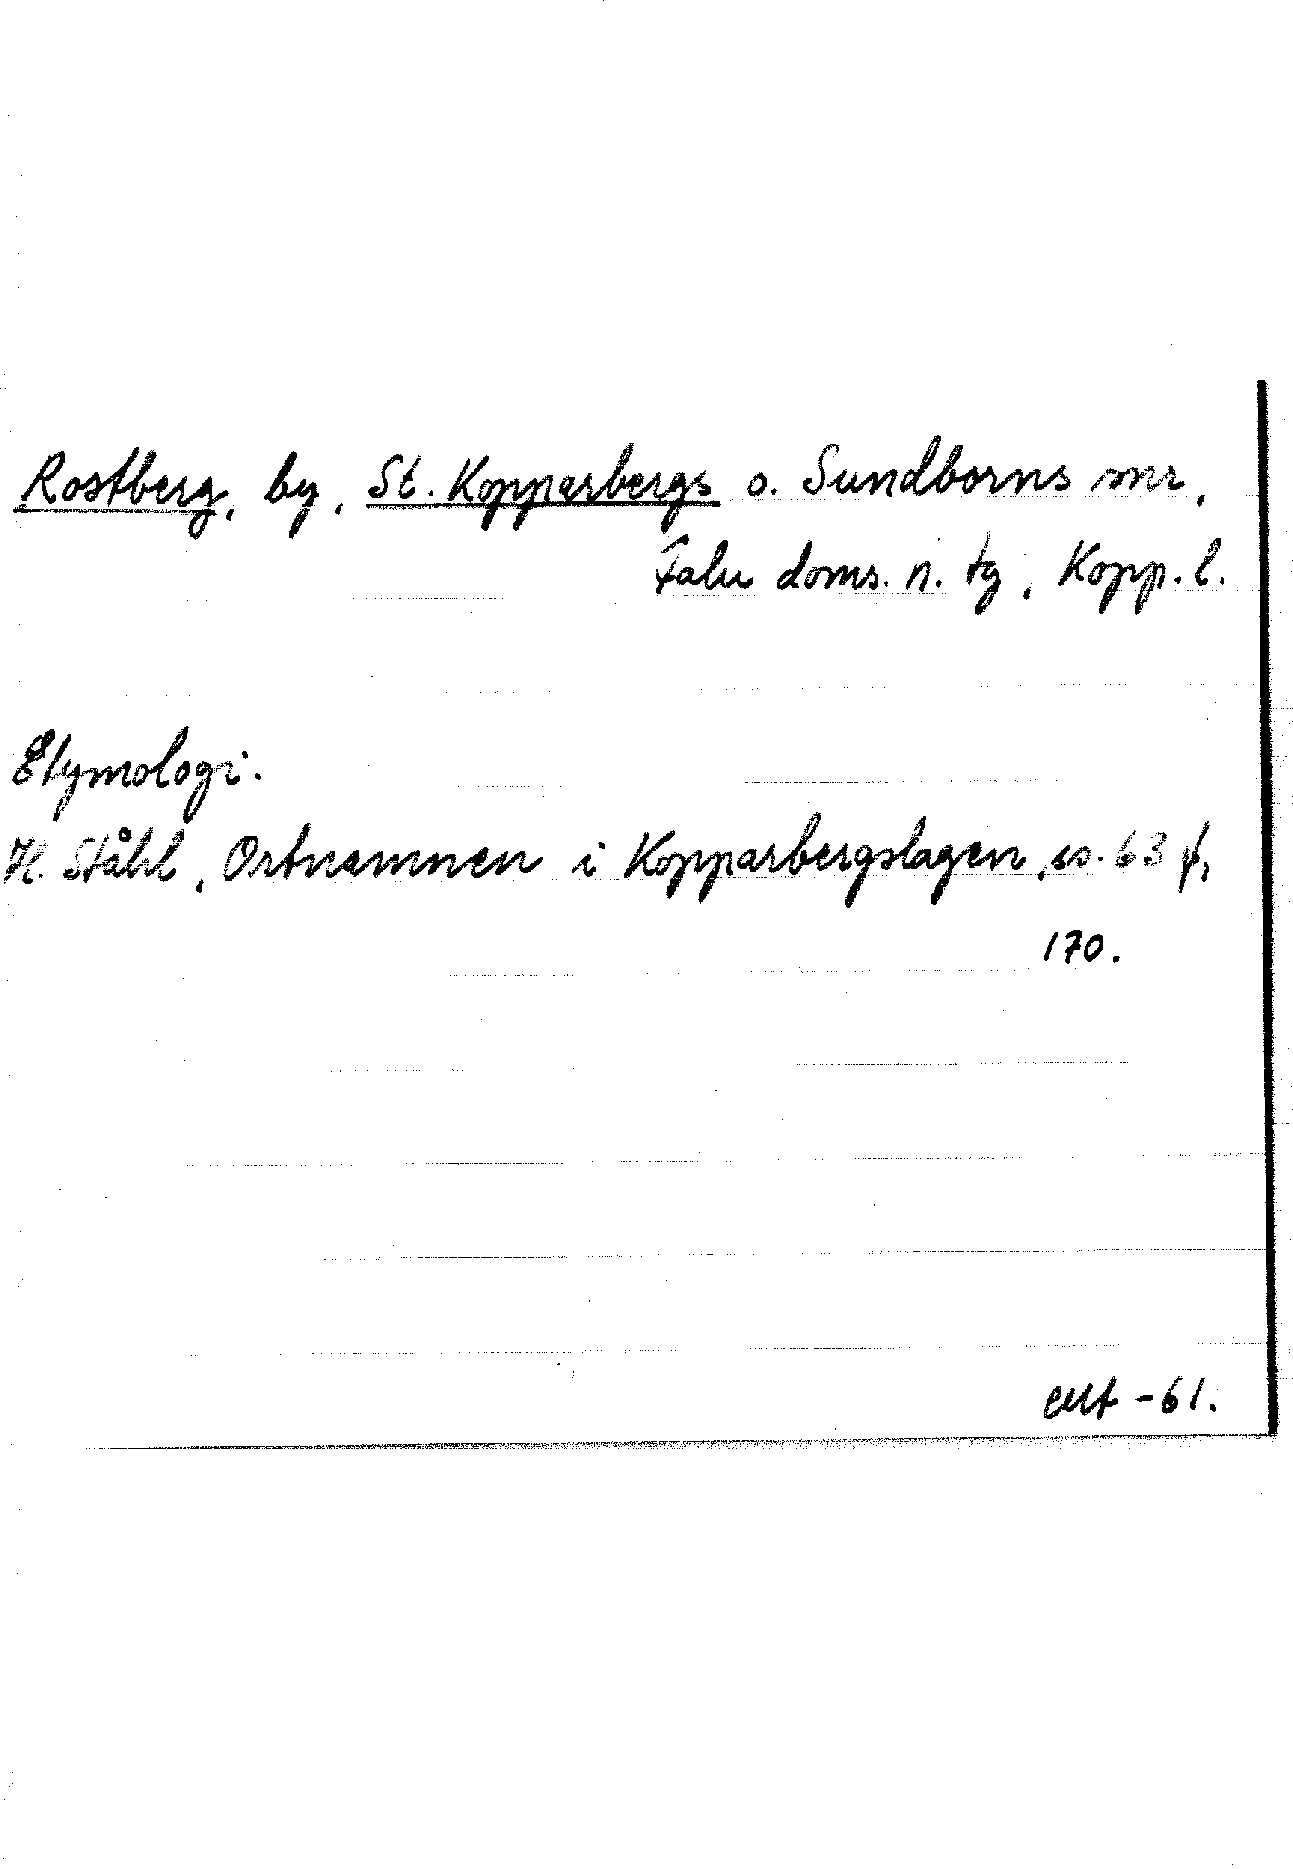 Rostberg, by, St. Kopparbergs o. Sundborns snr,
Falu doms. n. tg, Kopp. l.
Etymologi.
H. Ståhl, Ortnamnen i Kopparbergslagen, ss. 63 f,
170.
-61.